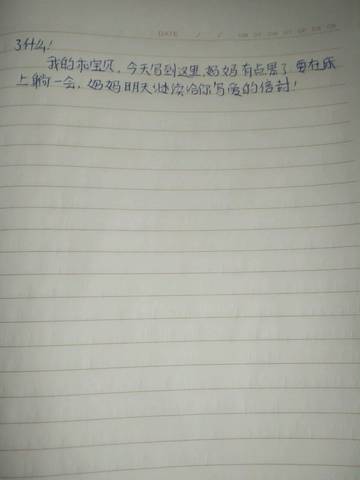 DATE / /
了什么!
我的乖宝贝,今天写到这里,妈妈有点累了要在床
上躺一会,妈妈明天继续给你写爱的信封!